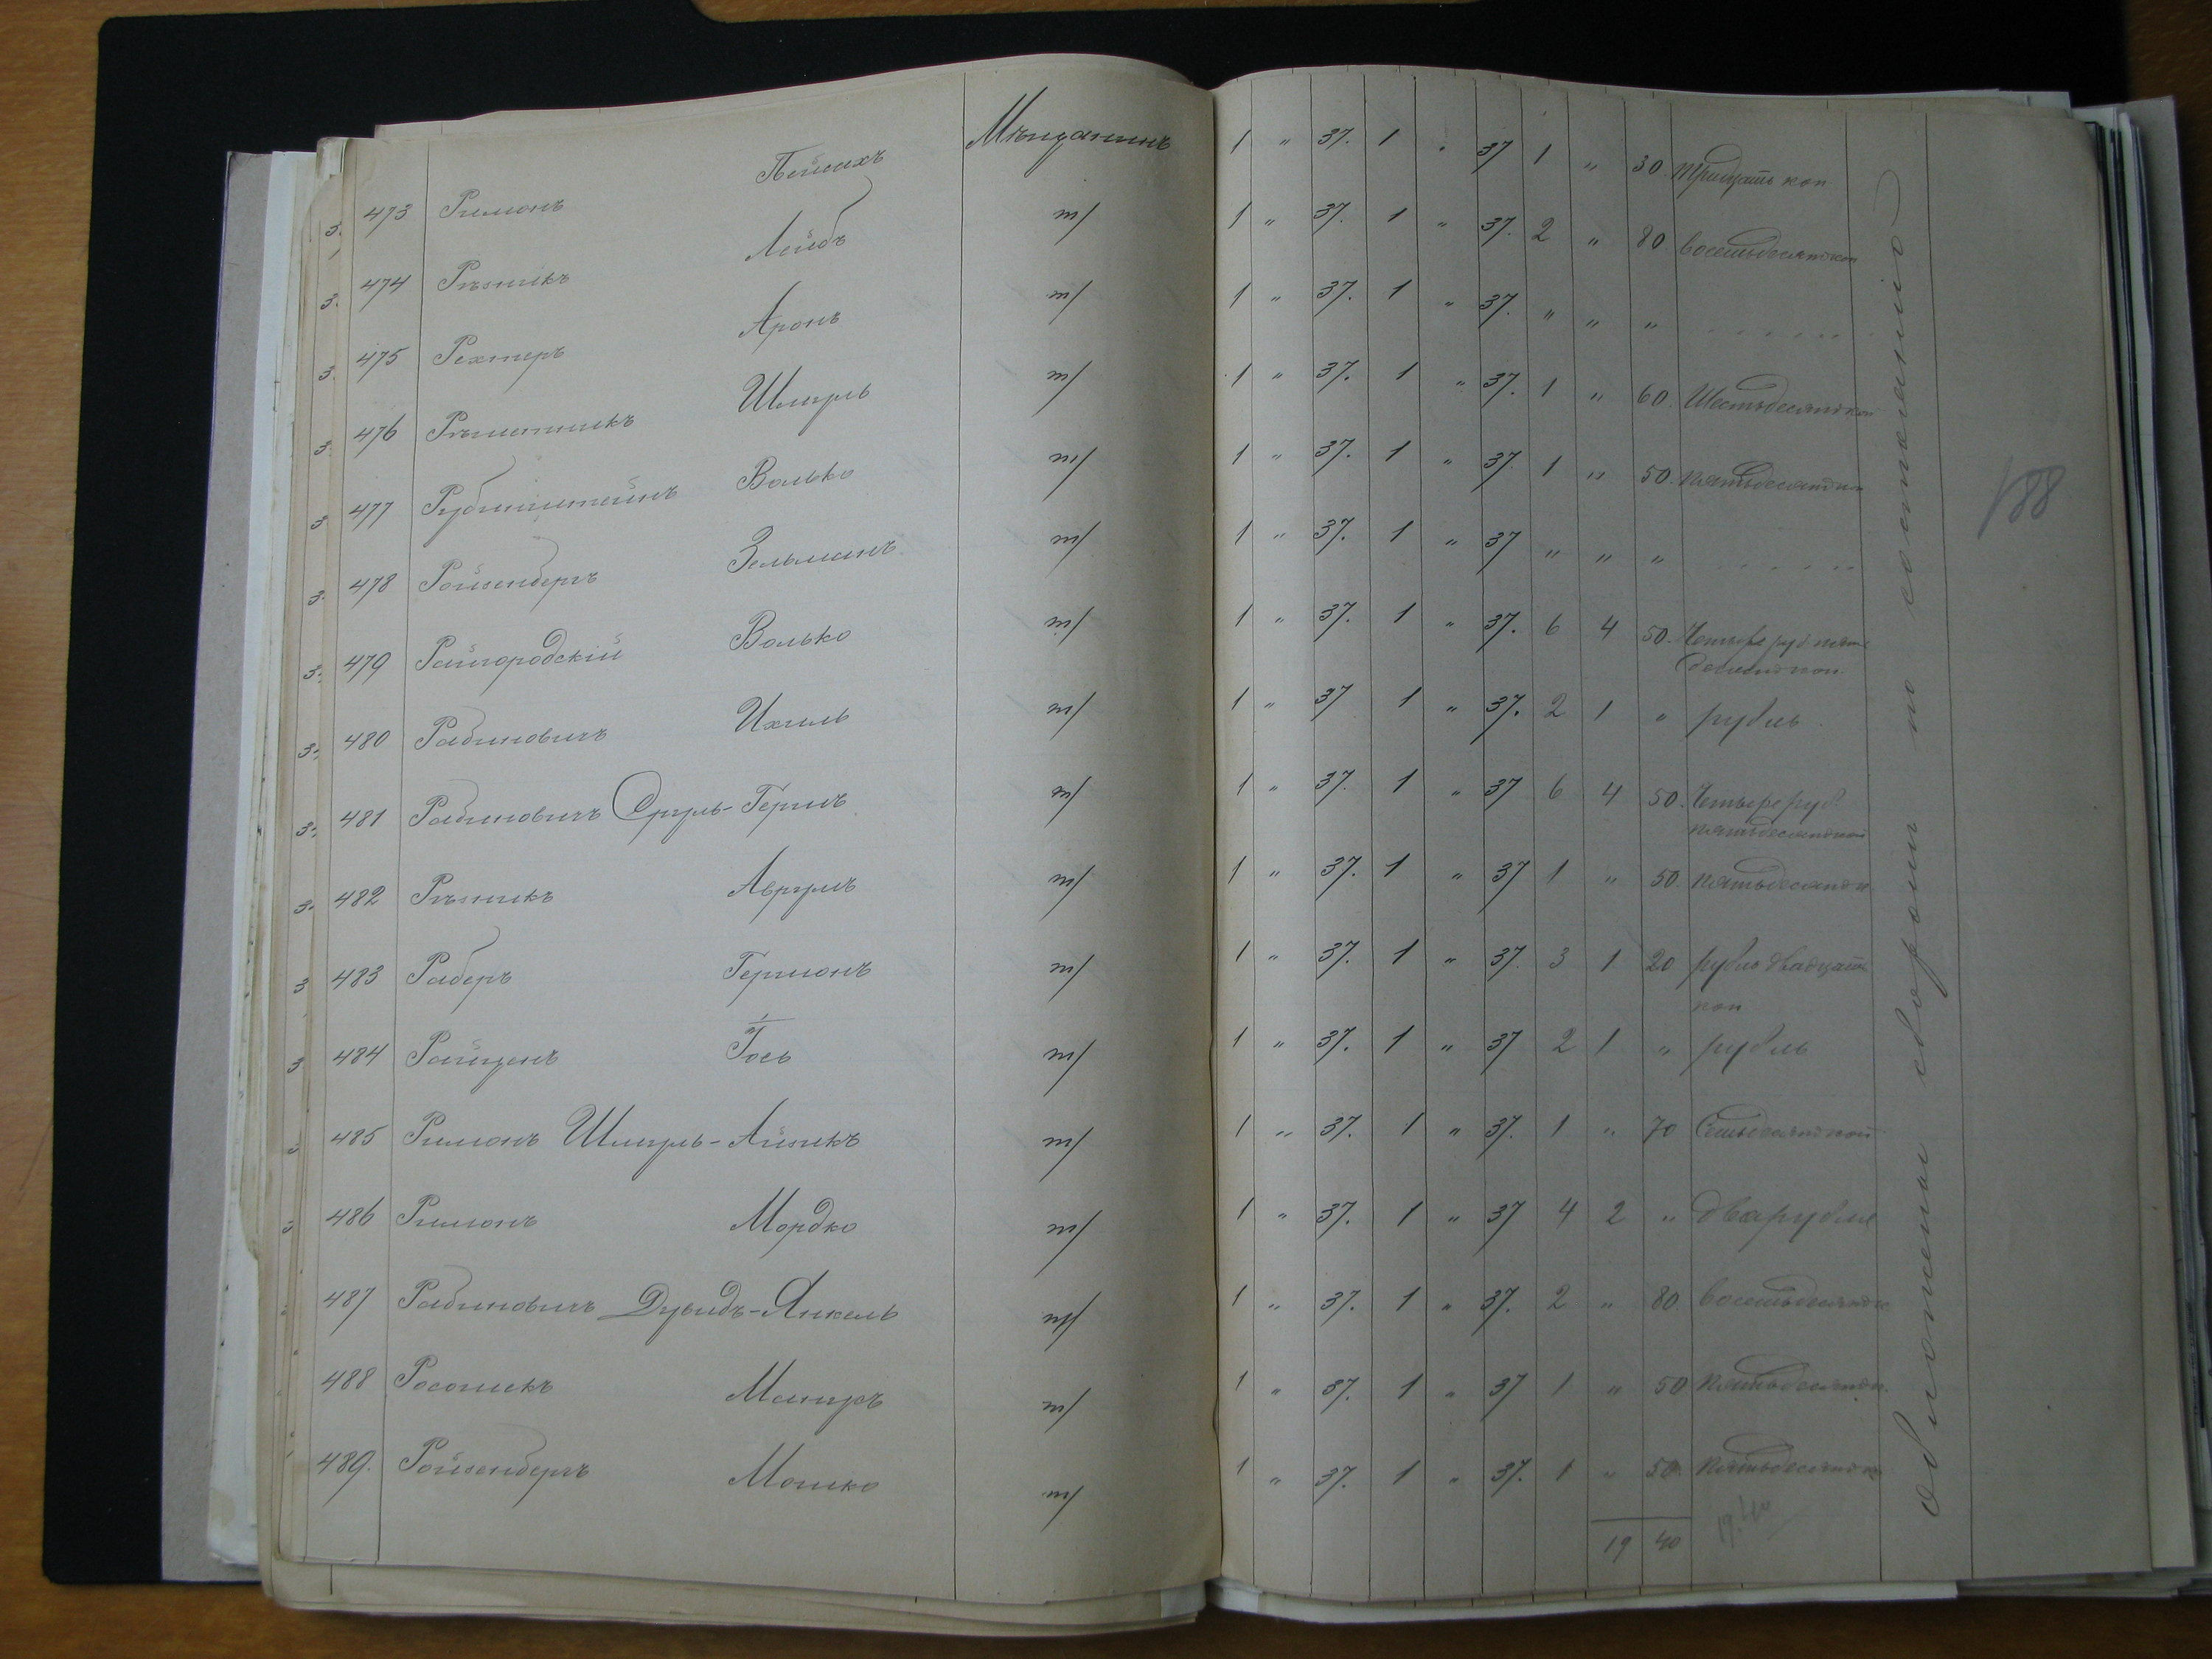 473 Римонъ Пейсахъ Мѣщанинъ 1 " 37. 1 " 37 1 " 30. тридцать коп
474 Рѣзникъ Лейбъ т/ 1 " 37. 1 " 37. 2 " 80 восемьдесятъ коп
475 Рехтеръ Аронъ т/ 1 " 37. 1 " 37. " " "
476 Рѣшетникъ Шмуль т/ 1 " 37. 1 " 37. 1 " 60. Шестьдесятъ коп
477 Рубинштейнъ Волько т/ 1 " 37. 1 " 37. 1 " 50. пятьдесятъ к
478 Ройзенбергъ Зельманъ т/ 1 " 37. 1 " 37 " " "
479 Райгородскій Волько т/ 1 " 37. 1 " 37. 6 4 50. Четыре руб пять
десятъ коп.
480 Рабиновичъ Ихиль т/ 1 " 37 1 " 37. 2 1 " рубль
481 Рабиновичъ Сруль-Гершъ т/ 1 " 37. 1 " 37 6 4 50. Четыре руб
пятьдесятъ коп
482 Рѣзникъ Аврумъ т/ 1 " 37. 1 " 37 1 " 50. пятьдесятъ к
483 Раберъ Гершонъ т/ 1 " 37. 1 " 37. 3 1 20 рубль двадцать
коп
484 Райценъ Іось т/ 1 " 37. 1 " 37 2 1 " рубль
485 Римонъ Шмуль-Айзикъ т/ 1 " 37. 1 " 37. 1 " 70 Семьдесятъ коп
486 Римонъ Мордко т/ 1 " 37. 1 " 37 4 2 " два рубля
487 Рабиновичъ Дувидъ-Янкель т/ 1 " 37. 1 " 37. 2 " 80 восемьдесятъ к
488 Росоникъ Меиръ т/ 1 " 37. 1 " 37 1 " 50 пятьдесятъ к.
489. Ройзенбергъ Мошко т/ 1 " 37. 1 " 37. 1 " 50 пятьдесятъ к
19 40
19.40
обложены сборомъ по состоянію
188